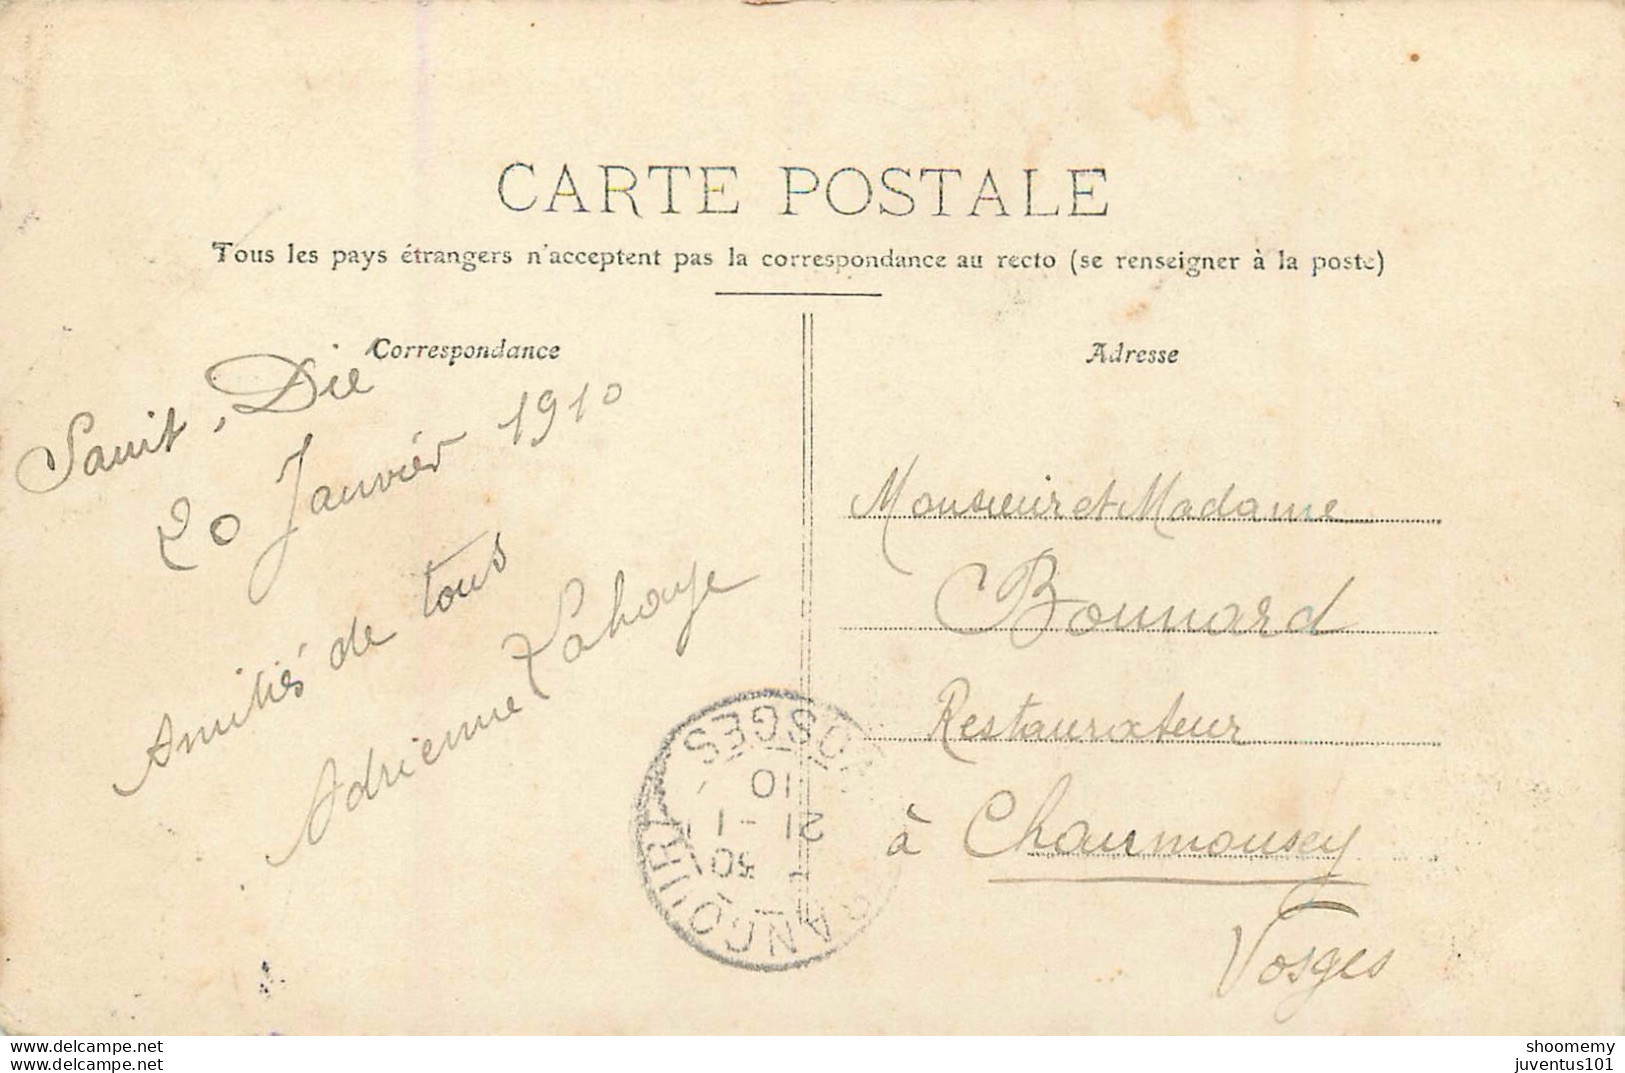 CARTE POSTALE
Tous les pays étrangers n'acceptent pas la correspondance au recto (se renseigner à la poste)
Correspondance
Saint, Dié
20 Janvier 1910
Amitiés de tous
Adrienne Lahaye
Adresse
Monsieur et Madame
Bonnard
Restaurateur
à Chaumousey
Vosges
VOSGES
10
21 -1
30
www.delcampe.net
www.delcampe.net
shoomemy
juventus101